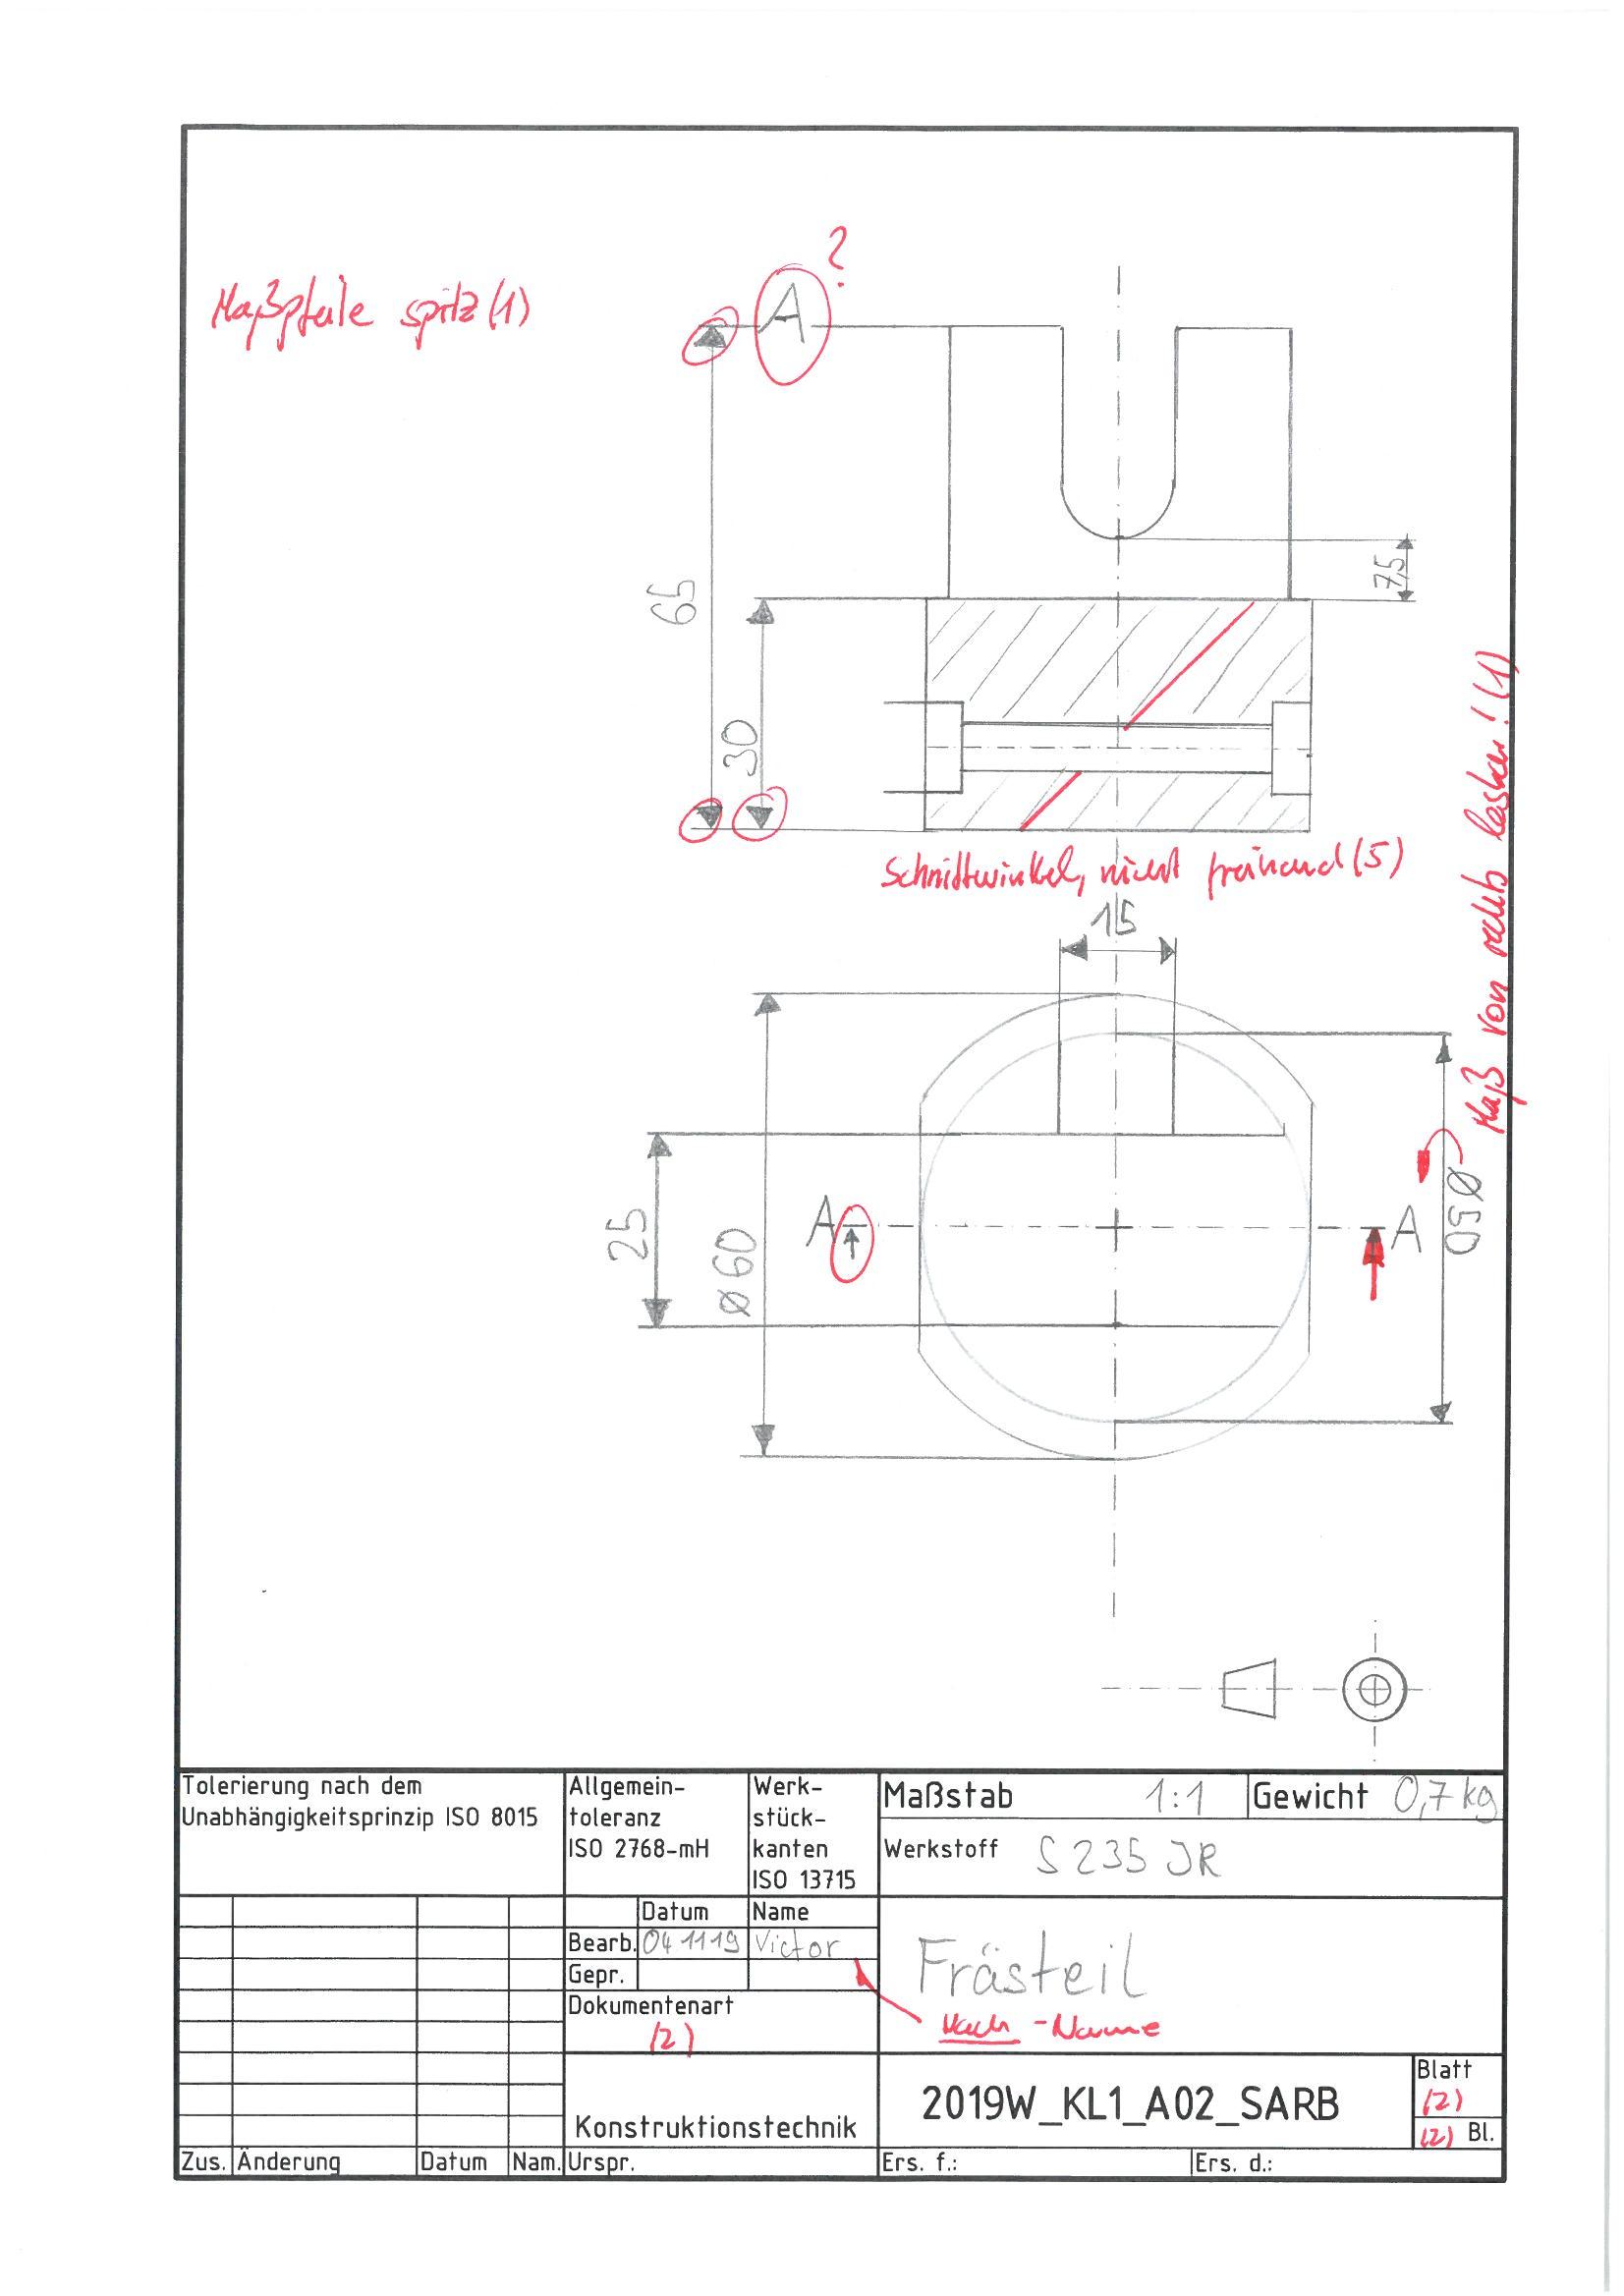 ?
Maßpfeile spitz (1)
A
65
7,5
30
Maß von rechts lesbar! (1)
Schnittwinkel, nicht freihand (5)
15
25
Ø 60
A
A
Ø50
Tolerierung nach dem
Unabhängigkeitsprinzip ISO 8015
Allgemein-
toleranz
ISO 2768-mH
Werk-
stück-
kanten
ISO 13715
Maßstab 1:1
Gewicht 0,7 kg
Werkstoff S 235 JR
Datum Name
Bearb. 04 11 19 Victor
Gepr.
Dokumentenart
(2)
Frästeil
Nach - Name
Konstruktionstechnik
2019W_KL1_A02_SARB
Blatt
(2)
(2) Bl.
Zus. Änderung Datum Nam. Urspr. Ers. f.: Ers. d.: